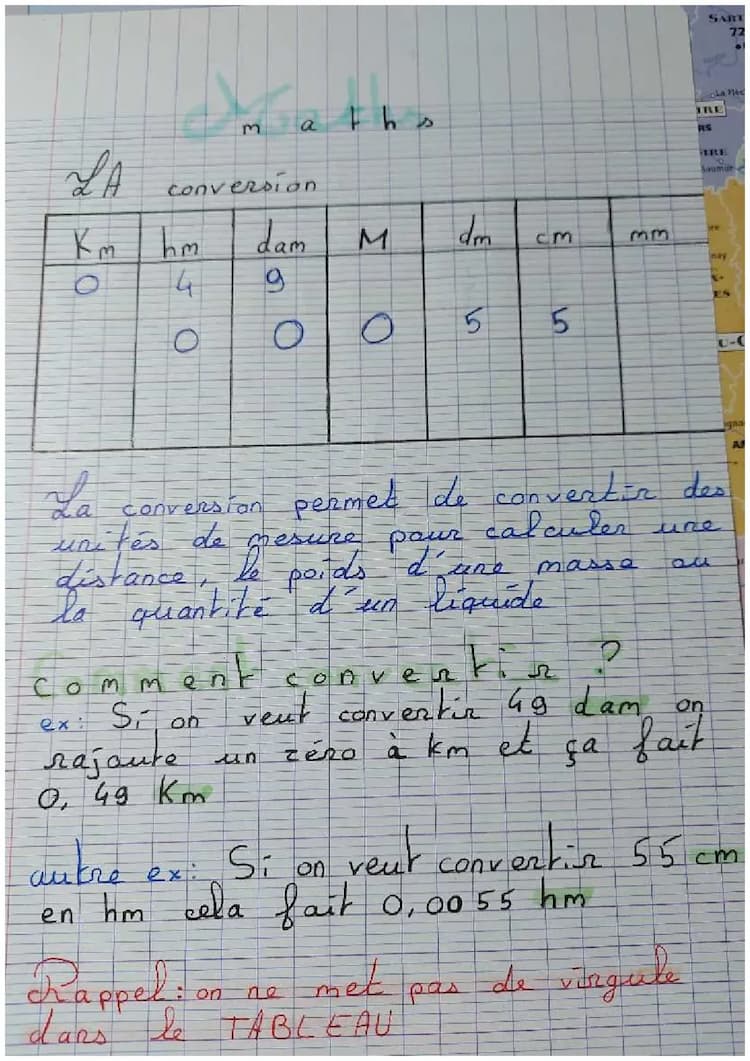 SART
72
maths
La Flèc
LA conversion
Km hm dam M dm cm mm
0 4 9
0 0 0 5 5
La conversion permet de convertir des
unités de mesure pour calculer une
distance, le poids d'une masse ou
la quantité d'un liquide
Comment convertir ?
ex: Si on veut convertir 49 dam on
rajoute un zéro à km et ça fait
0,49 Km
autre ex: Si on veut convertir 55 cm
en hm cela fait 0,0055 hm
Rappel: on ne met pas de virgule
dans le TABLEAU